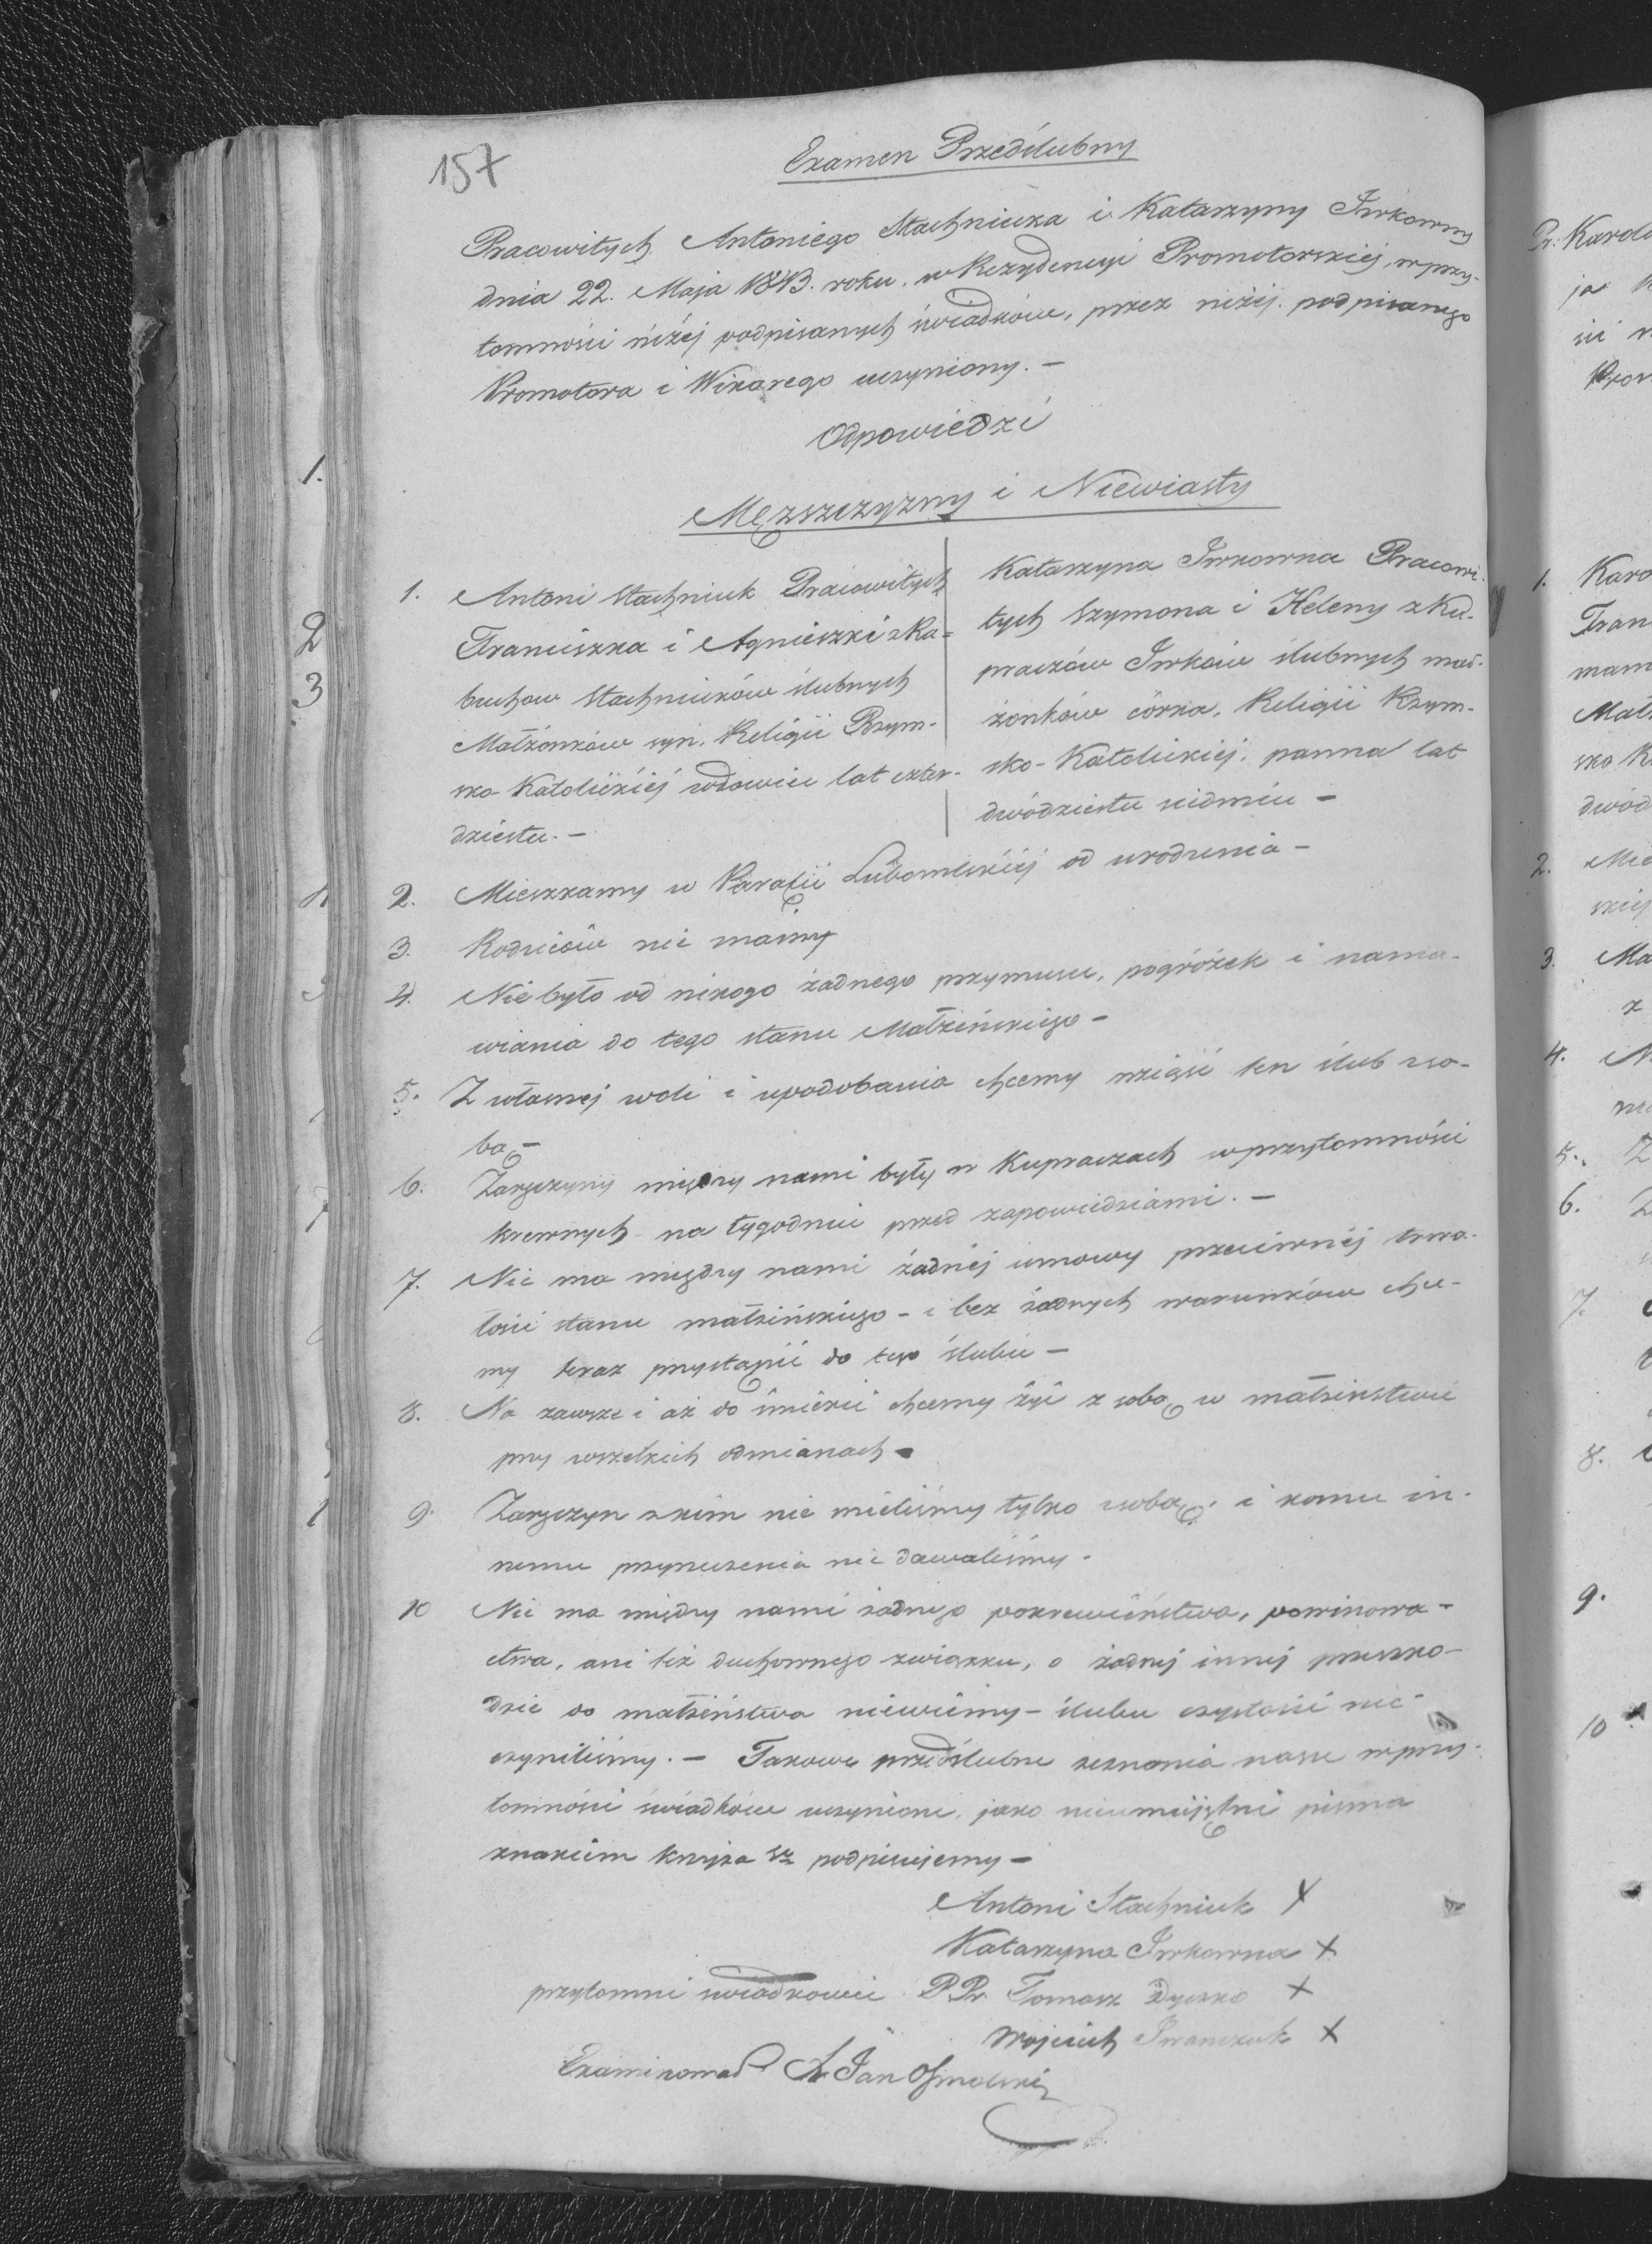 157
Examen Przedślubny
Pracowitych Antoniego Stachniuka i Katarzyny Iwkowny
dnia 22. Maja 1843. roku. w Rezydencyi Promotorskiej, wprzy-
tomności niżéj podpisanych świadków, przez niżéj podpisanego
Promotora i Wikarego uczyniony. —
Odpowiedzi
Męzszczyzny i Niewiasty
1. Antoni Stachniuk Pracowitych
Franciszka i Agnieszki z Ra=
buchow Stachniuków ślubnych
Małżonków syn, Religii Rzym-
sko Katolickiéj wdowiec lat czter-
dziestu. —
Katarzyna Iwkowna Pracowi-
tych Szymona i Heleny z Ku-
praczów Iwków ślubnych mał-
żonków córka, Religii Rzym-
sko-Katolickiej, panna lat
dwódziestu siedmiu —
2. Mieszkamy w Parafii Lubomlskiéj od urodzenia —
3. Rodziców nie mamy
4. Nie było od nikogo żadnego przymusu, pogróżek i nama-
wiania do tego stanu Małżeńskiego —
5. Z własnej woli i upodobania chcemy wziąść ten ślub z so-
bą —
6. Zaręczyny między nami były w Kupraczach w przytomności
krewnych na tygodniu przed zapowiedziami. —
7. Nie ma między nami żadnéj umowy przeciwnéj trwa-
łości stanu małżeńskiego — i bez żadnych warunków chce-
my teraz przystąpić do tego ślubu —
8. Na zawsze i aż do śmierci chcemy żyć z sobą w małżeństwie
przy wszelkich odmianach —
9. Zaręczyn z kim nie mieliśmy tylko z sobą, i komu in-
nemu przyrzeczenia nie dawaliśmy.
10 Nie ma między nami żadnego pokrewieństwa, powinowa-
ctwa, ani też duchownego związku, o żadnej innej przeszko-
dzie do małżeństwa niewiemy — ślubu czystości nie
czyniliśmy. — Takowe przedślubne zeznania nasze w przy-
tomności świadków uczynione, jako nieumiejętni pisma
znakiem krzyża podpisujemy —
Antoni Stachniuk X
Katarzyna Iwkowna X
przytomni świadkowie P.Pr. Tomasz Dyczko X
Wojciech Iwanczuk X
Examinował X Jan Osmolski